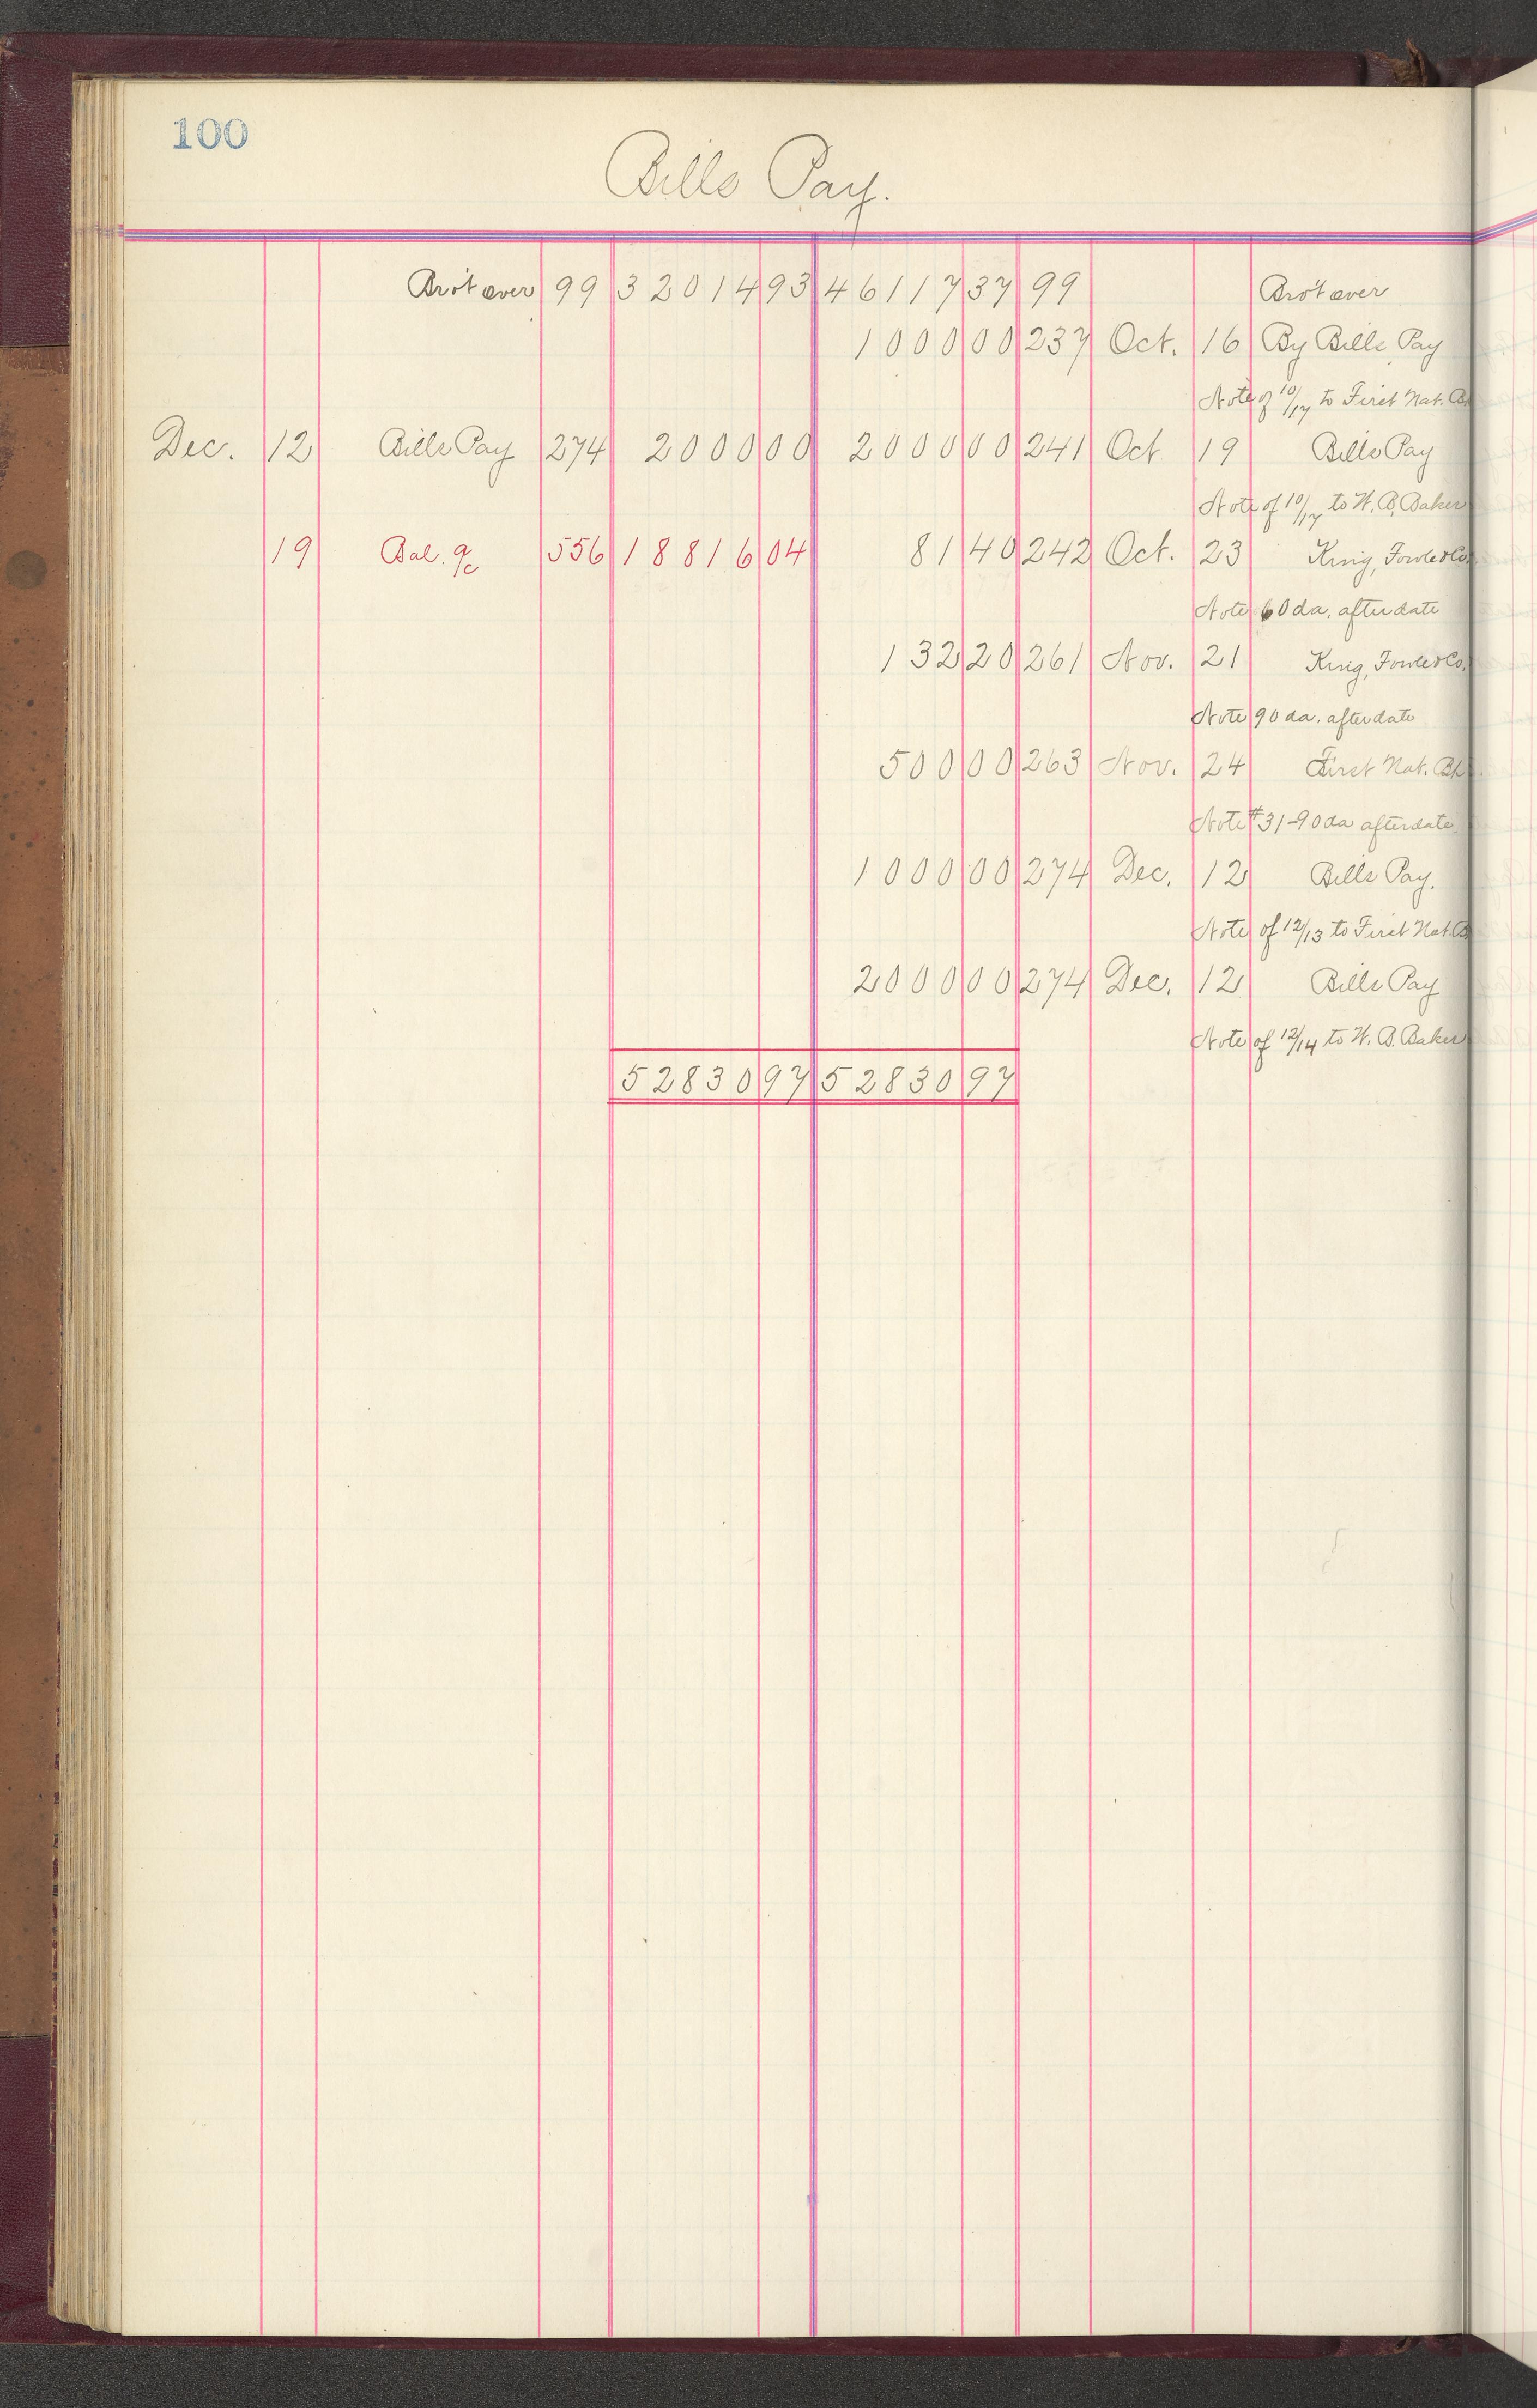 100
Bills Pay.
Bro't over 99 32014 93 46117 37 99 Brot over
1000 00 237 Oct. 16 By Bills Pay
Note of 10/17 to First Nat. B
Dec. 12 Bills Pay 274 2000 00 2000 00 241 Oct 19 Bills Pay
Note of 10/17 to W. B. Baker
19 Bal. a/c 556 18816 04 81 40 242 Oct. 23 King, Fowle & Co.
Note 60 da. after date
132 20 261 Nov. 21 King, Fowle & Co.
Note 90 da. after date
500 00 263 Nov. 24 First Nat. Bk
Note #31-90 da after date
1000 00 274 Dec. 12 Bills Pay.
Note of 12/13 to First Nat. B
2000 00 274 Dec. 12 Bills Pay
Note of 12/14 to W. B. Baker
52830 97 52830 97